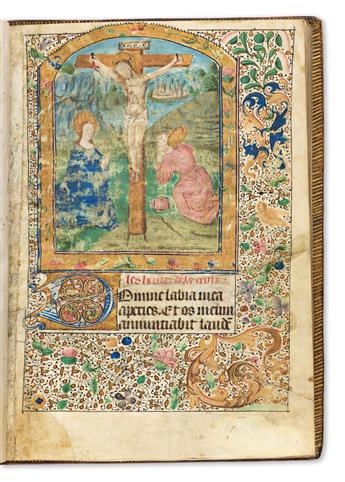 INRI
Les heures de la croix
Domine labia mea
aperies. Et os meum
annuntiabit laudē